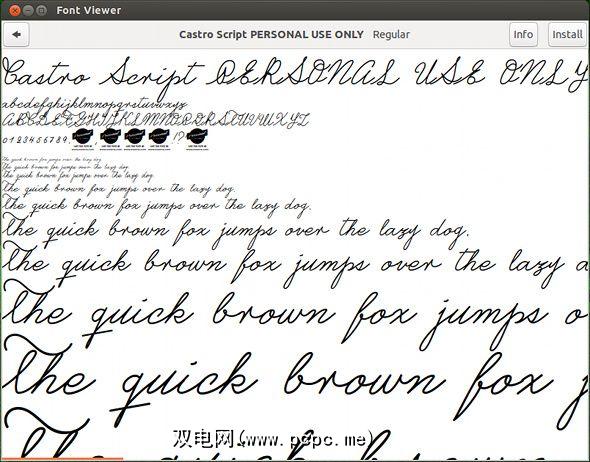 Font Viewer
Castro Script PERSONAL USE ONLY Regular
Info
Install
Castro Script PERSONAL USE ONLY
abcdefghijklmnopqrstuvwxyz
ABCDEFGHIJKLMNOPQRSTUVWXYZ
0123456789., !?
The quick brown fox jumps over the lazy dog.
The quick brown fox jumps over the lazy dog.
The quick brown fox jumps over the lazy dog.
The quick brown fox jumps over the lazy dog.
The quick brown fox jumps over the lazy dog.
The quick brown fox jumps over the lazy dog.
The quick brown fox jumps over the lazy d
The quick brown fox jumps o
The quick brown fox j
The quick brown
双电网(www.pcpc.me)